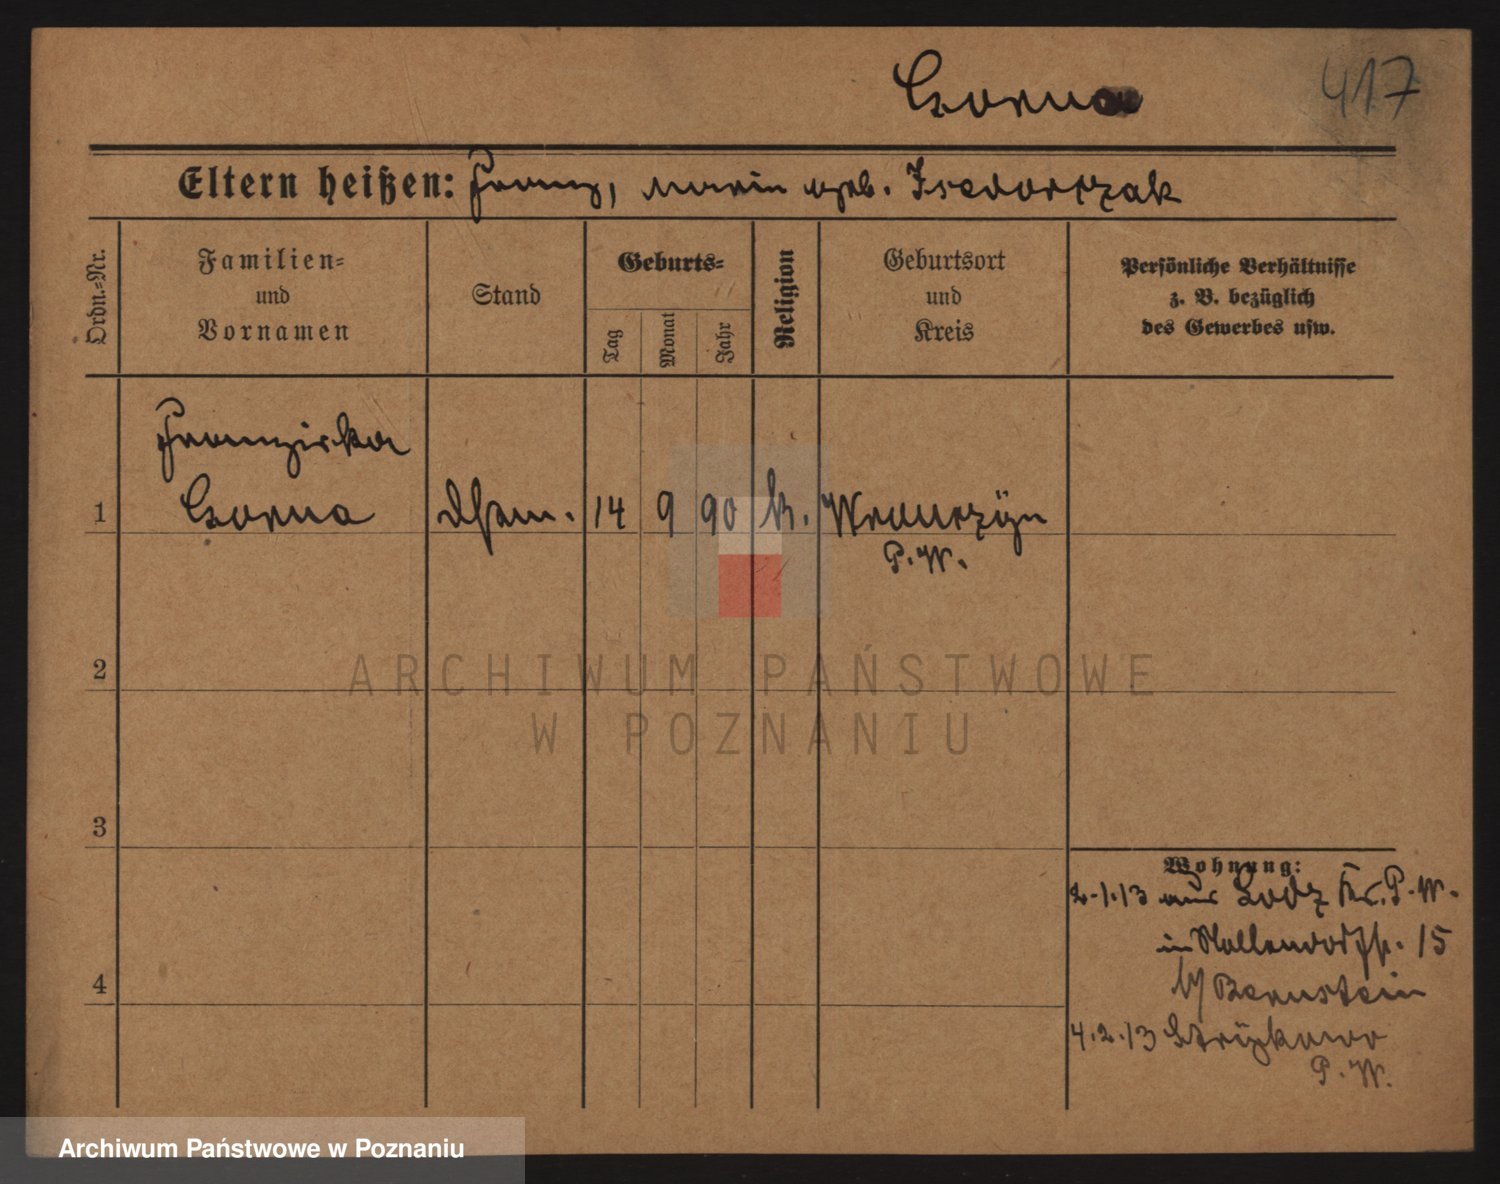 Gorna
417
Eltern heißen: Franz, Marie geb. Fredorczak
Ordn.-Nr.
Familien-
und
Vornamen
Stand
Geburts-
Tag
Monat
Jahr
Religion
Geburtsort
und
Kreis
Persönliche Verhältnisse
z. B. bezüglich
des Gewerbes usw.
Franziska
1 Gorna 14 9 90 k. Wronczyn
P. W.
2
3
4
Wohnung:
2.1.13 aus Lodz Kr. P. W.
in Nollendorfstr. 15
b/ Bernstein
4.2.13 Strykowo
P. W.
ARCHIWUM PAŃSTWOWE
W POZNANIU
Archiwum Państwowe w Poznaniu